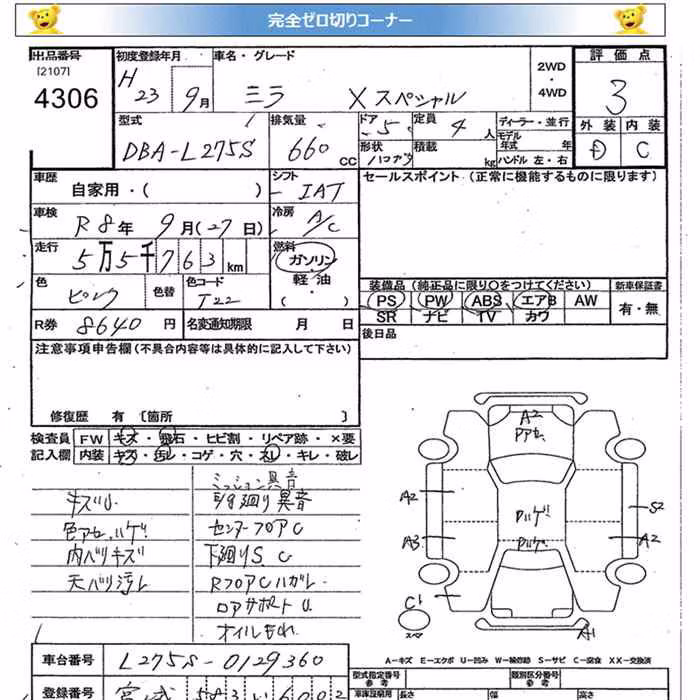 完全ゼロ切りコーナー
出品番号
[2107]
4306
初度登録年月
H 23 9月
車名・グレード
ミラ Xスペシャル
2WD
・
4WD
評価点
3
外装 内装
D C
型式
DBA-L275S
排気量
660 cc
ドア 5
定員 4 人
形状 ハコガタ
積載 kg
ディーラー・並行
モデル年式 年
ハンドル 左・右
車歴
自家用・( )
シフト
IAT
セールスポイント(正常に機能するものに限ります)
車検
R8年 9月(27日)
冷房
A/C
走行
5万5千763km
燃料
ガソリン
・
軽油
・
( )
色
ピンク
色替
色コード
T22
装備品(純正品に限り〇をつけてください)
新車保証書
PS PW ABS エアB AW
有・無
SR ナビ TV カワ
R券 8640 円
名変通知期限 月 日
後日品
注意事項申告欄(不具合内容等は具体的に記入して下さい)
修復歴 有 〔箇所 〕
検査員 FW キズ・飛石・ヒビ割・リペア跡・×要
記入欄 内装 キズ・汚レ・コゲ・穴・スレ・キレ・破レ
ミッション異音
キズ小
F/8廻り異音
色アセ、ハゲ
センターフロアC
内バリキズ
下廻りS、C
天バリ汚レ
RフロアCハガレ
ロアサポートU
オイルもれ
A2
アセ
A2
ハゲ
S2
A3
ハゲ
A2
C1
スペア
A1
A-キズ E-エクボ U-凹み W-補修跡 S-サビ C-腐食 XX-交換済
車台番号 L275S-0129360
型式指定番号
参考
類別区分番号
参考
登録番号 宮城 583 い 6002
車庫証明用
参考
長さ
幅
高さ